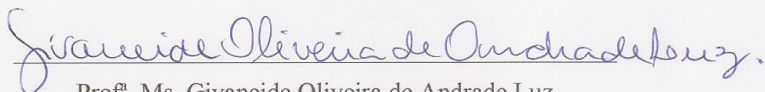 Givaneide Oliveira de Andrade Luz.
Profª. Ms. Givaneide Oliveira de Andrade Luz